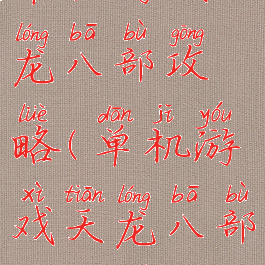 lóng bā bù gōng
龙八部攻
lüè dān jī yóu
略(单机游
xì tiān lóng bā bù
戏天龙八部